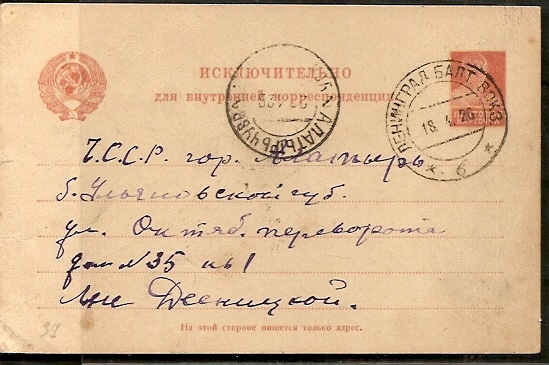 ИСКЛЮЧИТЕЛЬНО
для внутренней корреспонденции
ЛЕНИНГРАД БАЛТ. ВОКЗ.
18. 4. 26
6
АЛАТЫРЬ
Ч.С.С.Р. гор. Алатырь
б. Ульяновской губ.
ул. Октяб. переворота
дом N 35 кв 1
Десницкой.
На этой стороне пишется только адрес.